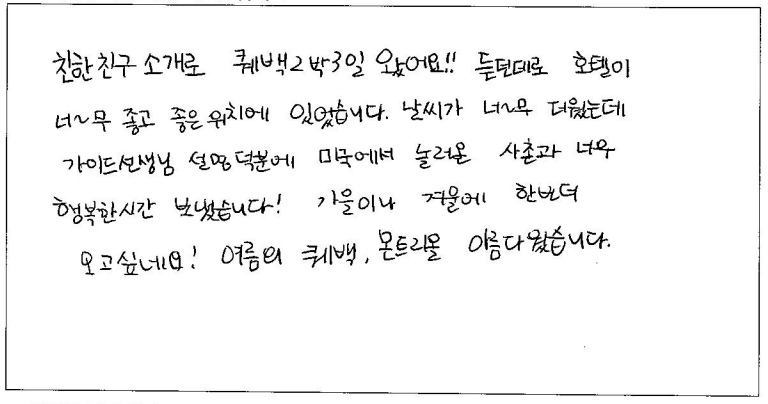 친한친구 소개로 퀘백2박3일 왔어요!! 듣던데로 호텔이
너~무 좋고 좋은위치에 있었습니다. 날씨가 너~무 더웠는데
가이드선생님 설명덕분에 미국에서 놀러온 사촌과 너무
행복한시간 보냈습니다! 가을이나 겨울에 한번더
오고싶네요! 여름의 퀘백, 몬트리올 아름다웠습니다.